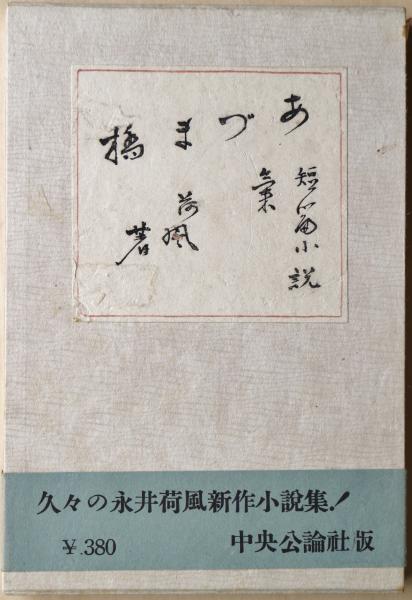 あづま橋
短篇小説
荷風
著
久々の永井荷風新作小説集！
¥.380
中央公論社版